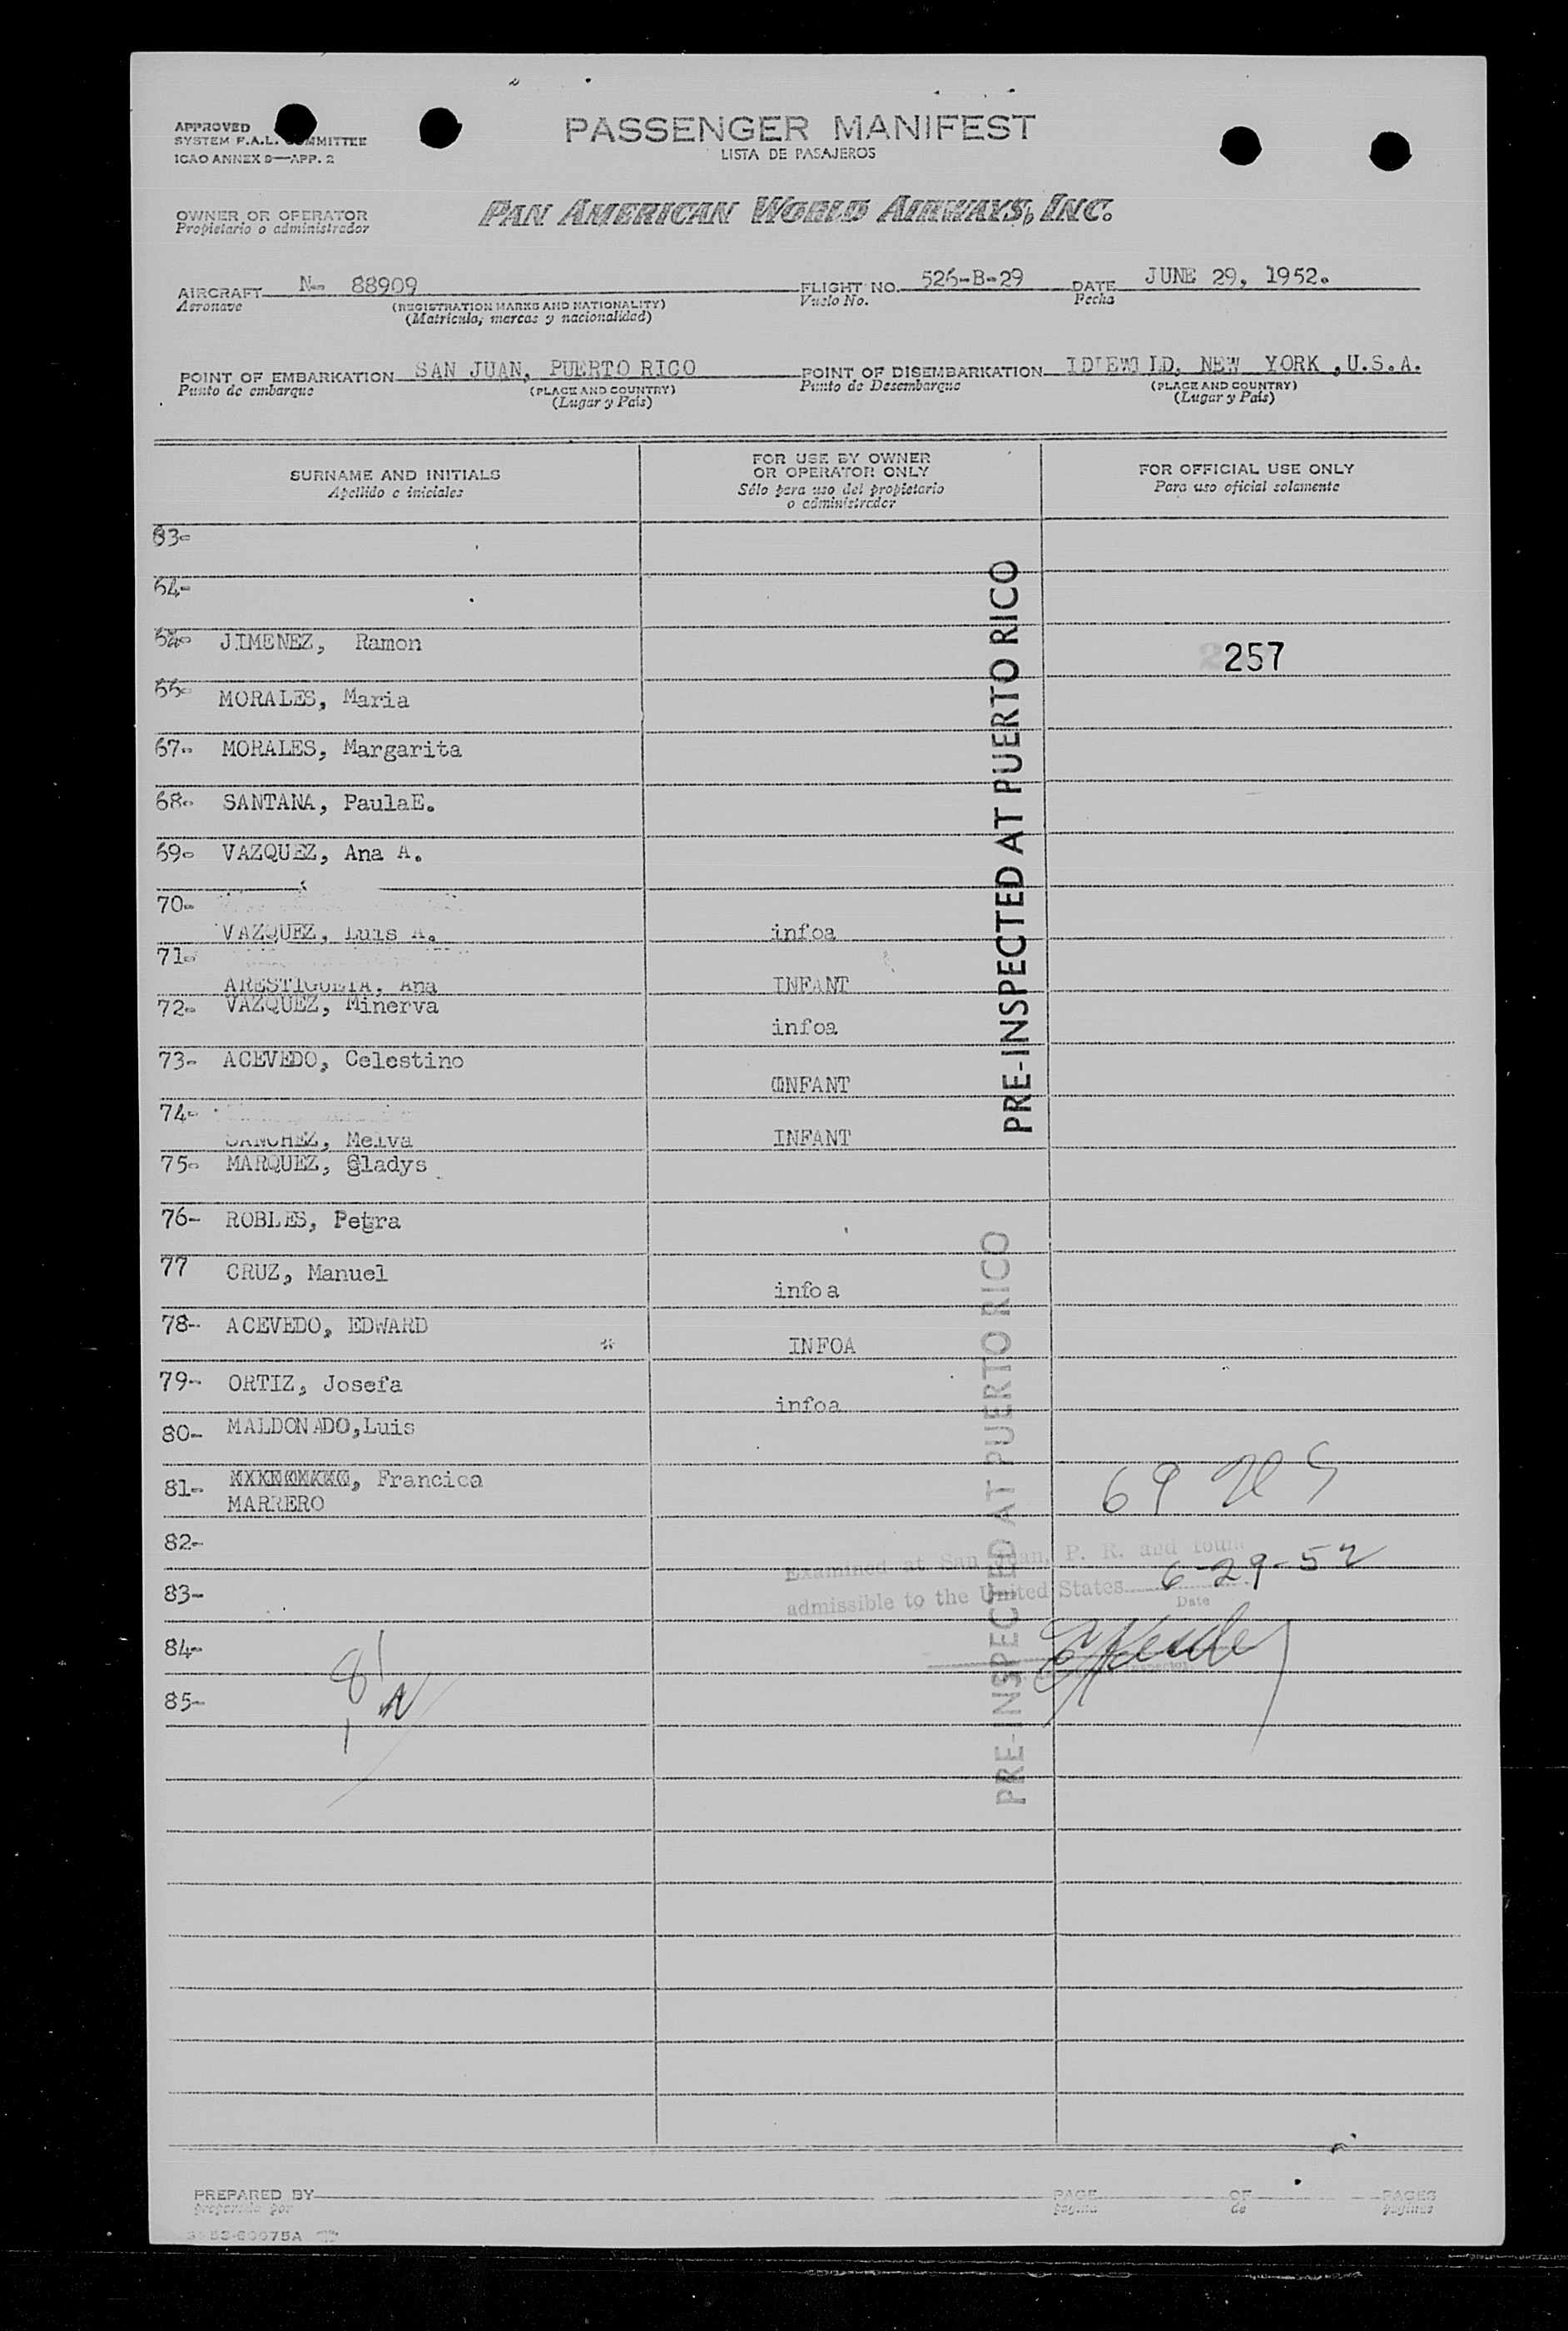 APPROVED
SYSTEM F.A.L. COMMITTEE
ICAO ANNEX 9—APP. 2
PASSENGER MANIFEST
LISTA DE PASAJEROS
OWNER OR OPERATOR
Propietario o administrador
PAN AMERICAN WORLD AIRWAYS, INC.
AIRCRAFT N- 88909 FLIGHT NO. 526-B-29 DATE JUNE 29, 1952.
Aeronave (REGISTRATION MARKS AND NATIONALITY) Vuelo No. Fecha
(Matricula, marcas y nacionalidad)
POINT OF EMBARKATION SAN JUAN, PUERTO RICO POINT OF DISEMBARKATION IDLEWILD, NEW YORK, U.S.A.
Punto de embarque (PLACE AND COUNTRY) Punto de Desembarque (PLACE AND COUNTRY)
(Lugar y País) (Lugar y País)
SURNAME AND INITIALS FOR USE BY OWNER OR OPERATOR ONLY FOR OFFICIAL USE ONLY
Apellido e iniciales Sólo para uso del propietario o administrador Para uso oficial solamente
63-
64-
JIMENEZ, Ramon 257
66- MORALES, Maria
67- MORALES, Margarita
68- SANTANA, PaulaE.
69- VAZQUEZ, Ana A.
70-
VAZQUEZ, Luis A. infoa
71-
ARESTIGUETA, Ana INFANT
72- VAZQUEZ, Minerva
infoa
73- ACEVEDO, Celestino
INFANT
74-
SANCHEZ, Melva INFANT
75- MARQUEZ, Gladys
76- ROBLES, Petra
77 CRUZ, Manuel
infoa
78- ACEVEDO, EDWARD
* INFOA
79- ORTIZ, Josefa
infoa
80- MALDONADO,Luis
81- , Francica
MARRERO
69
82-
83-
84-
85-
81
PRE-INSPECTED AT PUERTO RICO
PRE-INSPECTED AT PUERTO RICO
Examined at San Juan, P. R. and found
admissible to the United States 6-29-52
Date
PREPARED BY PAGE OF PAGES
preparado por página de páginas